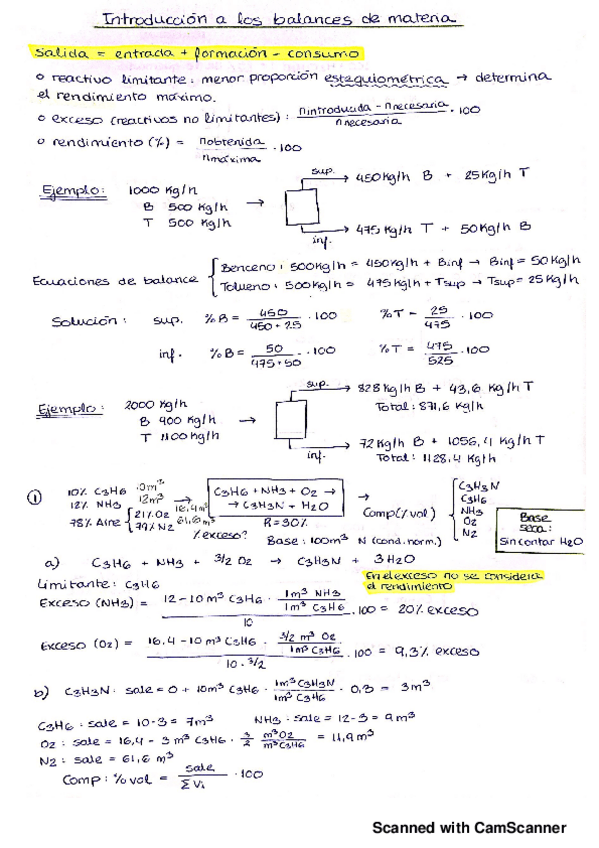 Introducción a los balances de materia
salida = entrada + formación - consumo
o reactivo limitante: menor proporción estequiométrica → determina
el rendimiento máximo.
o exceso (reactivos no limitantes): (nintroducida - nnecesaria / nnecesaria) · 100
o rendimiento (%) = (nobtenida / nmáxima) · 100
Ejemplo: 1000 Kg/h
B 500 Kg/h
T 500 Kg/h
→ sup. → 450 Kg/h B + 25 Kg/h T
inf. → 475 Kg/h T + 50 Kg/h B
Ecuaciones de balance
Benceno: 500 Kg/h = 450 Kg/h + Binf → Binf = 50 Kg/h
Tolueno: 500 Kg/h = 475 Kg/h + Tsup → Tsup = 25 Kg/h
Solución: sup. %B = 450 / 450 + 25 · 100 %T = 25 / 475 · 100
inf. %B = 50 / 475 + 50 · 100 %T = 475 / 525 · 100
Ejemplo: 2000 Kg/h
B 900 Kg/h
T 1100 Kg/h
→ sup. → 828 Kg/h B + 43,6 Kg/h T
Total: 871,6 Kg/h
inf. → 72 Kg/h B + 1056,4 Kg/h T
Total: 1128,4 Kg/h
① 10% C3H6 10m³
12% NH3 12m³
78% Aire { 21% O2 16,4m³
79% N2 61,6m³
→ C3H6 + NH3 + O2 →
→ C3H3N + H2O
R = 30%
¿exceso?
Base: 100m³ N (cond. norm.)
→ Comp (% vol) { C3H3N
C3H6
NH3
O2
N2
Base
seca:
sin contar H2O
a) C3H6 + NH3 + 3/2 O2 → C3H3N + 3 H2O
Limitante: C3H6
En el exceso no se considera
el rendimiento
Exceso (NH3) = (12 - 10 m³ C3H6 · 1m³ NH3 / 1m³ C3H6) / 10 · 100 = 20% exceso
Exceso (O2) = (16,4 - 10 m³ C3H6 · 3/2 m³ O2 / 1m³ C3H6) / 10 · 3/2 · 100 = 9,3% exceso
b) C3H3N: sale = 0 + 10m³ C3H6 · 1m³ C3H3N / 1m³ C3H6 · 0,3 = 3m³
C3H6: sale = 10 - 3 = 7m³ NH3: sale = 12 - 3 = 9 m³
O2: sale = 16,4 - 3 m³ C3H6 · 3/2 m³ O2 / m³ C3H6 = 11,9 m³
N2: sale = 61,6 m³
Comp: % vol = sale / Σ Vi · 100
Scanned with CamScanner